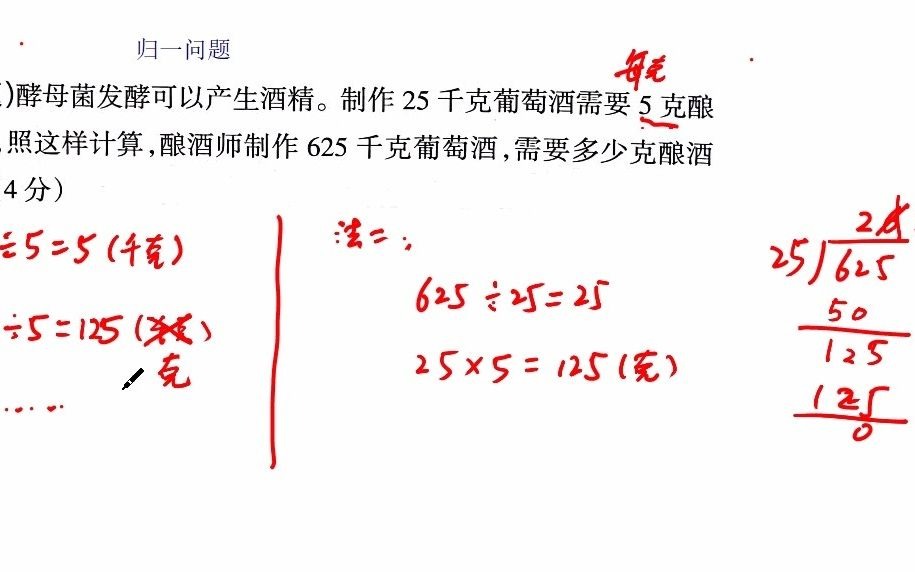 归一问题
每克
)酵母菌发酵可以产生酒精。制作 25 千克葡萄酒需要 5 克酿
照这样计算,酿酒师制作 625 千克葡萄酒,需要多少克酿酒
4 分)
÷5=5(千克)
÷5=125(
克
......
法二:
625÷25=25
25×5=125(克)
2
25)625
50
125
125
0